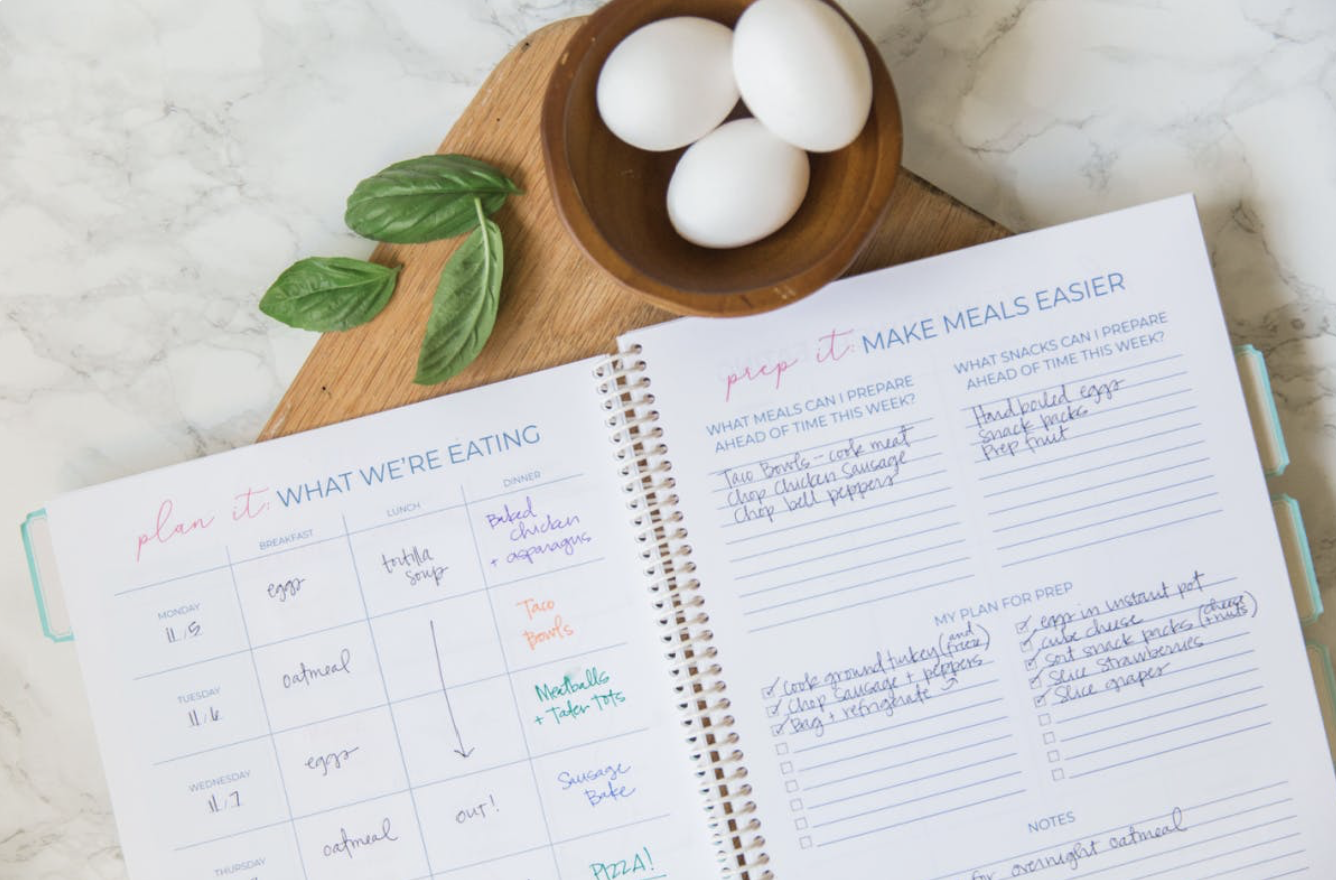 plan it: WHAT WE'RE EATING
BREAKFAST
LUNCH
DINNER
MONDAY
11.5
eggs
tortilla
soup
Baked
chicken
+ asparagus
TUESDAY
11.6
oatmeal
Taco
Bowls
WEDNESDAY
11.7
eggs
Meatballs
+ Tater Tots
THURSDAY
oatmeal
OUT!
Sausage
Bake
PIZZA!
prep it: MAKE MEALS EASIER
WHAT MEALS CAN I PREPARE
AHEAD OF TIME THIS WEEK?
Taco Bowls - cook meat
Chop Chicken Sausage
Chop bell peppers
WHAT SNACKS CAN I PREPARE
AHEAD OF TIME THIS WEEK?
Hard boiled eggs
snack packs
Prep fruit
MY PLAN FOR PREP
Cook ground turkey (and freeze)
Chop sausage + peppers
Bag + refrigerate
eggs in instant pot
cube cheese
sort snack packs (cheese + nuts)
Slice strawberries
Slice grapes
NOTES
for overnight oatmeal